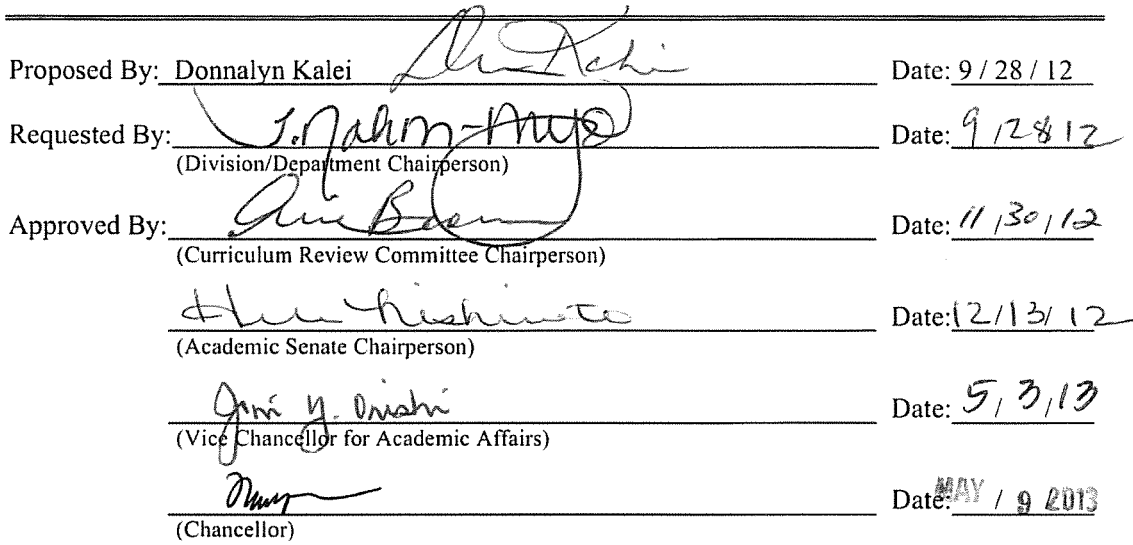 Proposed By: Donnalyn Kalei Date: 9 / 28 / 12
Requested By: Date: 9 / 28 12
(Division/Department Chairperson)
Approved By: Date: 11 / 30 / 12
(Curriculum Review Committee Chairperson)
Date: 12 / 13 / 12
(Academic Senate Chairperson)
Date: 5 / 3 / 13
(Vice Chancellor for Academic Affairs)
Date: MAY / 9 2013
(Chancellor)